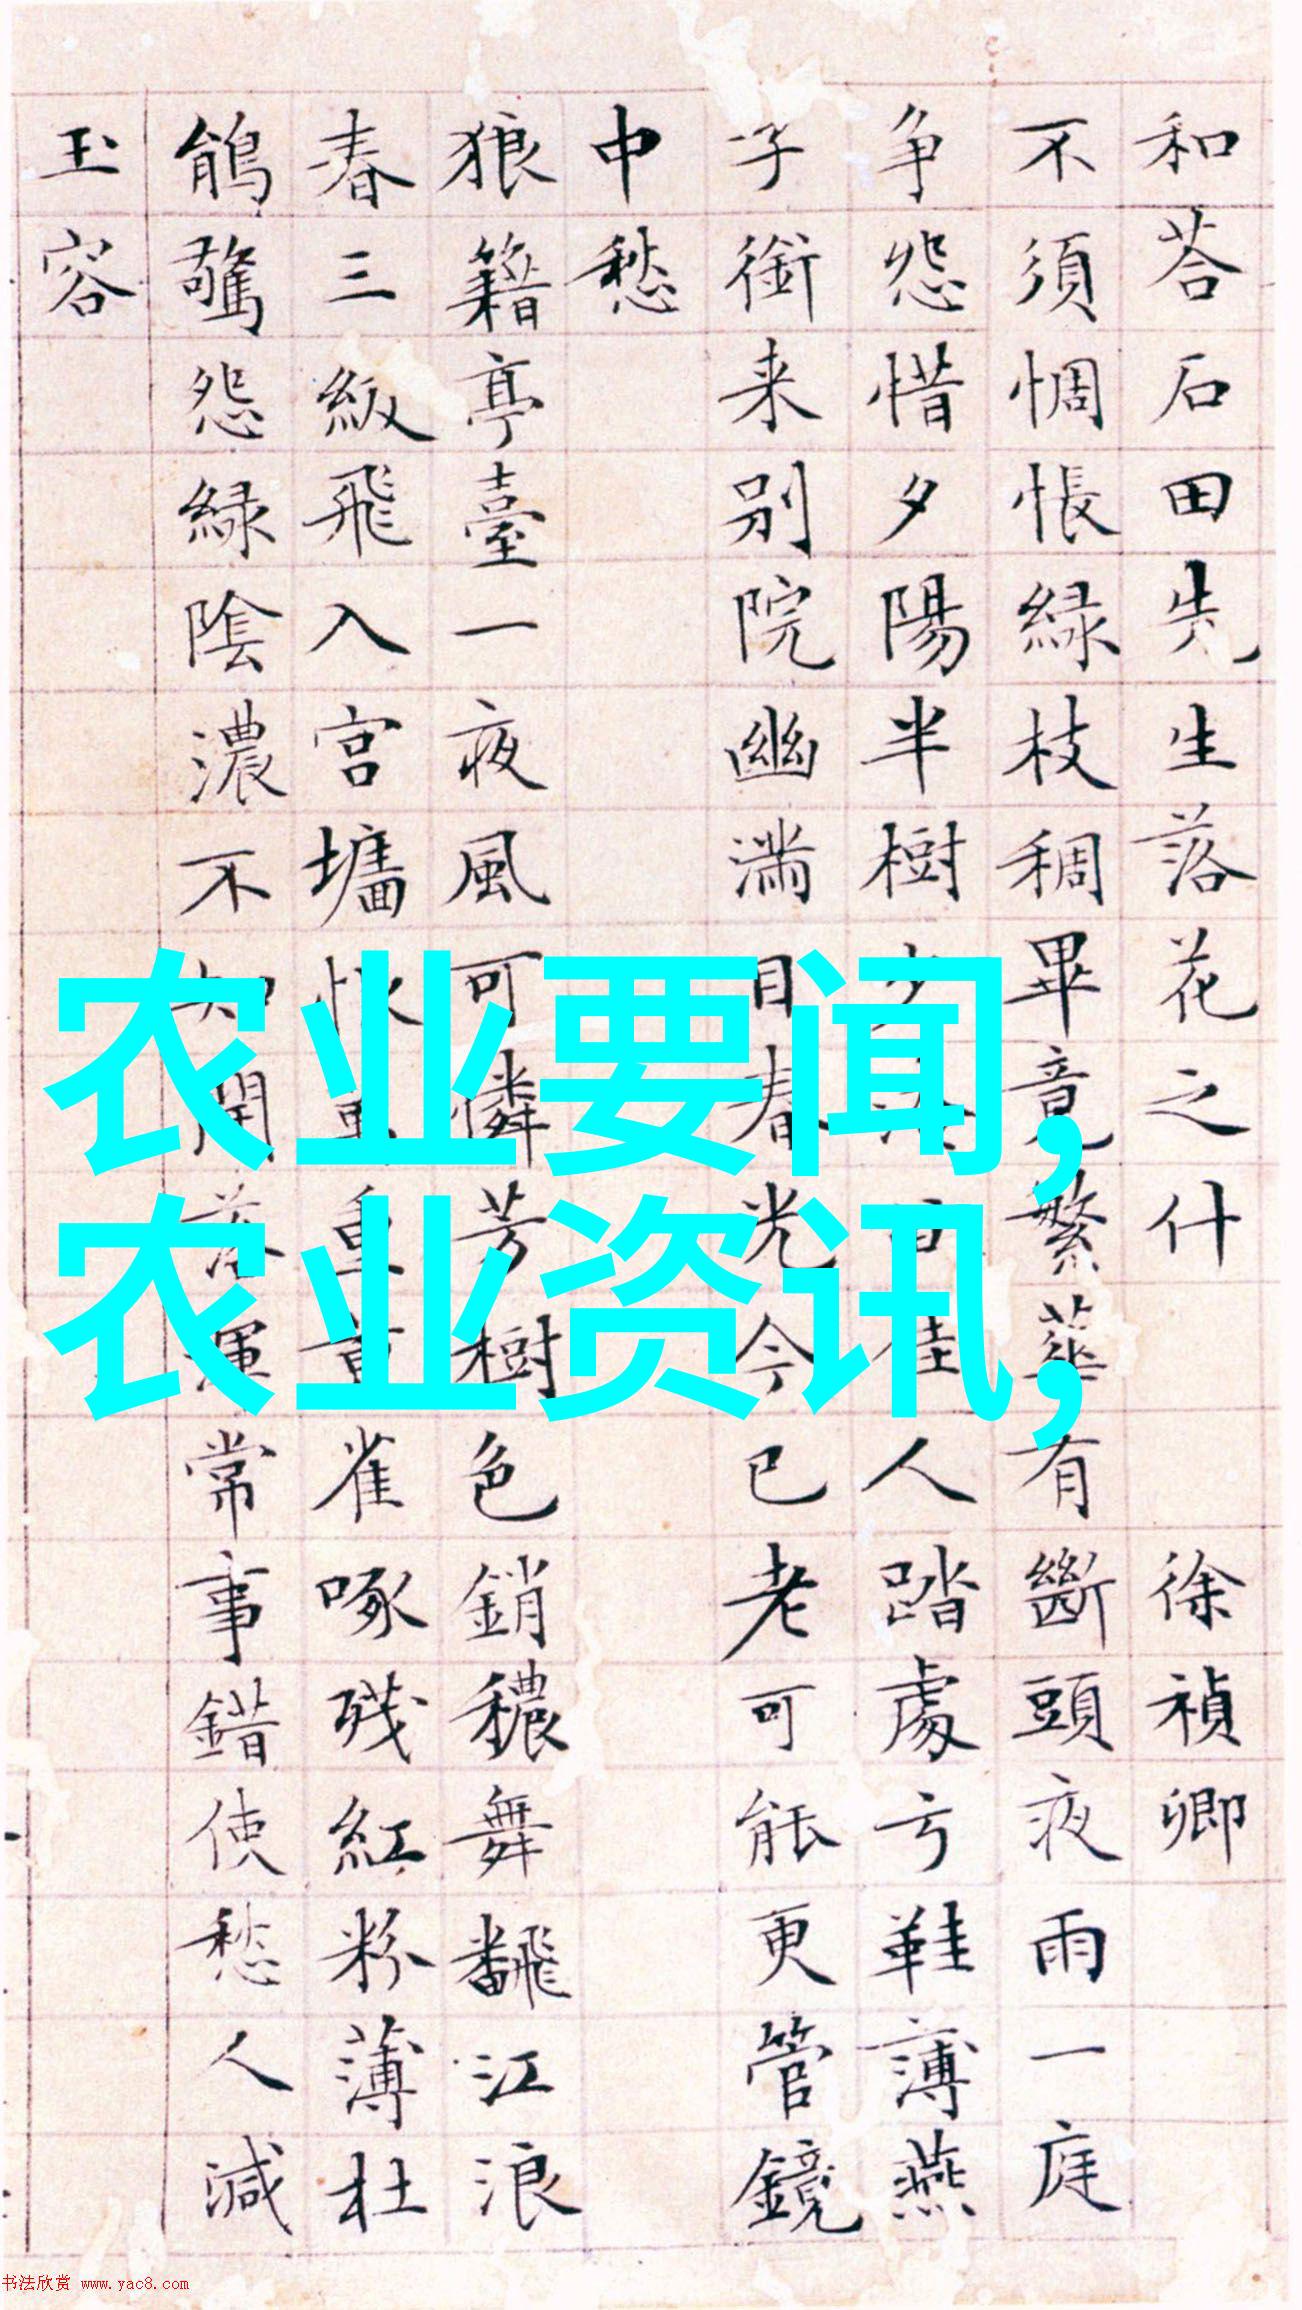 和荅石田先生落花之什 徐禎卿
不須惆悵綠枝稠畢竟繁華有斷頭夜雨一庭
争怨惜夕陽半樹佳人踏處弓鞋薄燕
子銜来别院幽滿目春光今已老可能更管鏡
中愁
狼籍亭臺一夜風可憐芳樹色銷穠舞飜江浪
春三級飛入宮墻恨重黃雀啄殘紅粉薄杜
鵑驚怨綠陰濃不知開落渾常事錯使愁人減
玉容
农业要闻,
农业资讯,
书法欣赏 www.yac8.com